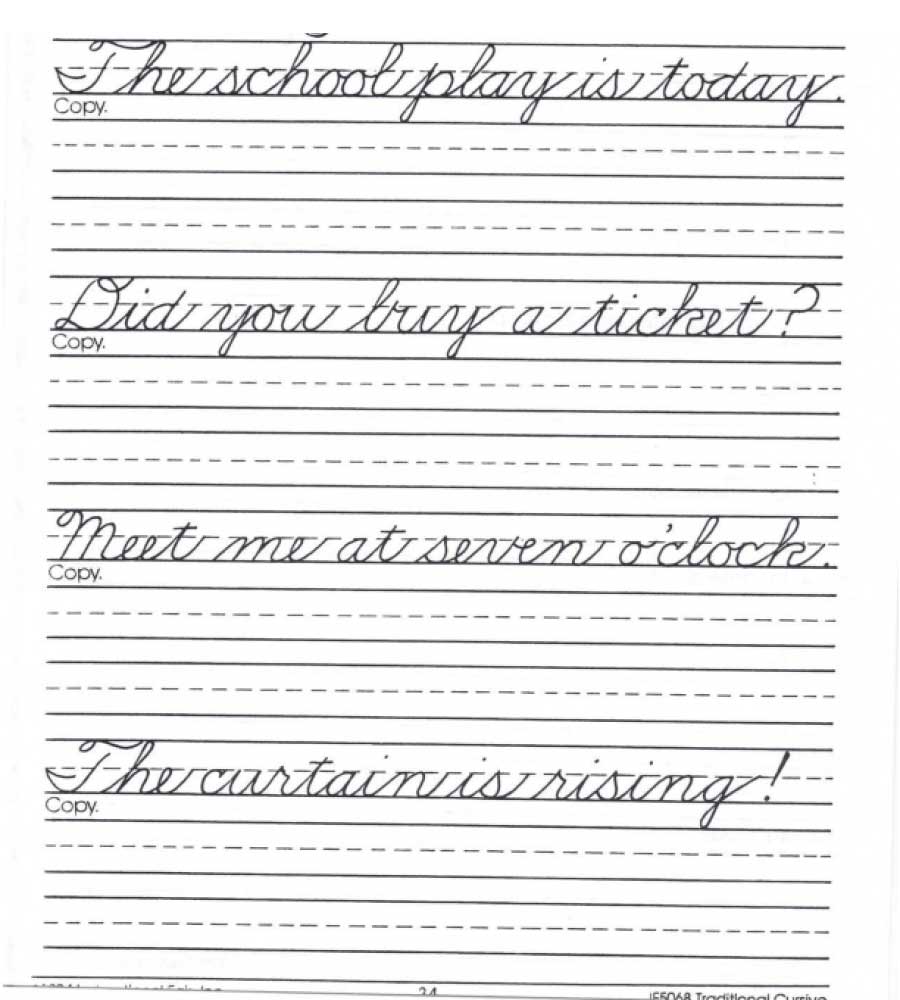 The school play is today.
Copy.
Did you buy a ticket?
Copy.
Meet me at seven o'clock.
Copy.
The curtain is rising!
Copy.
34 IF5068 Traditional Cursive